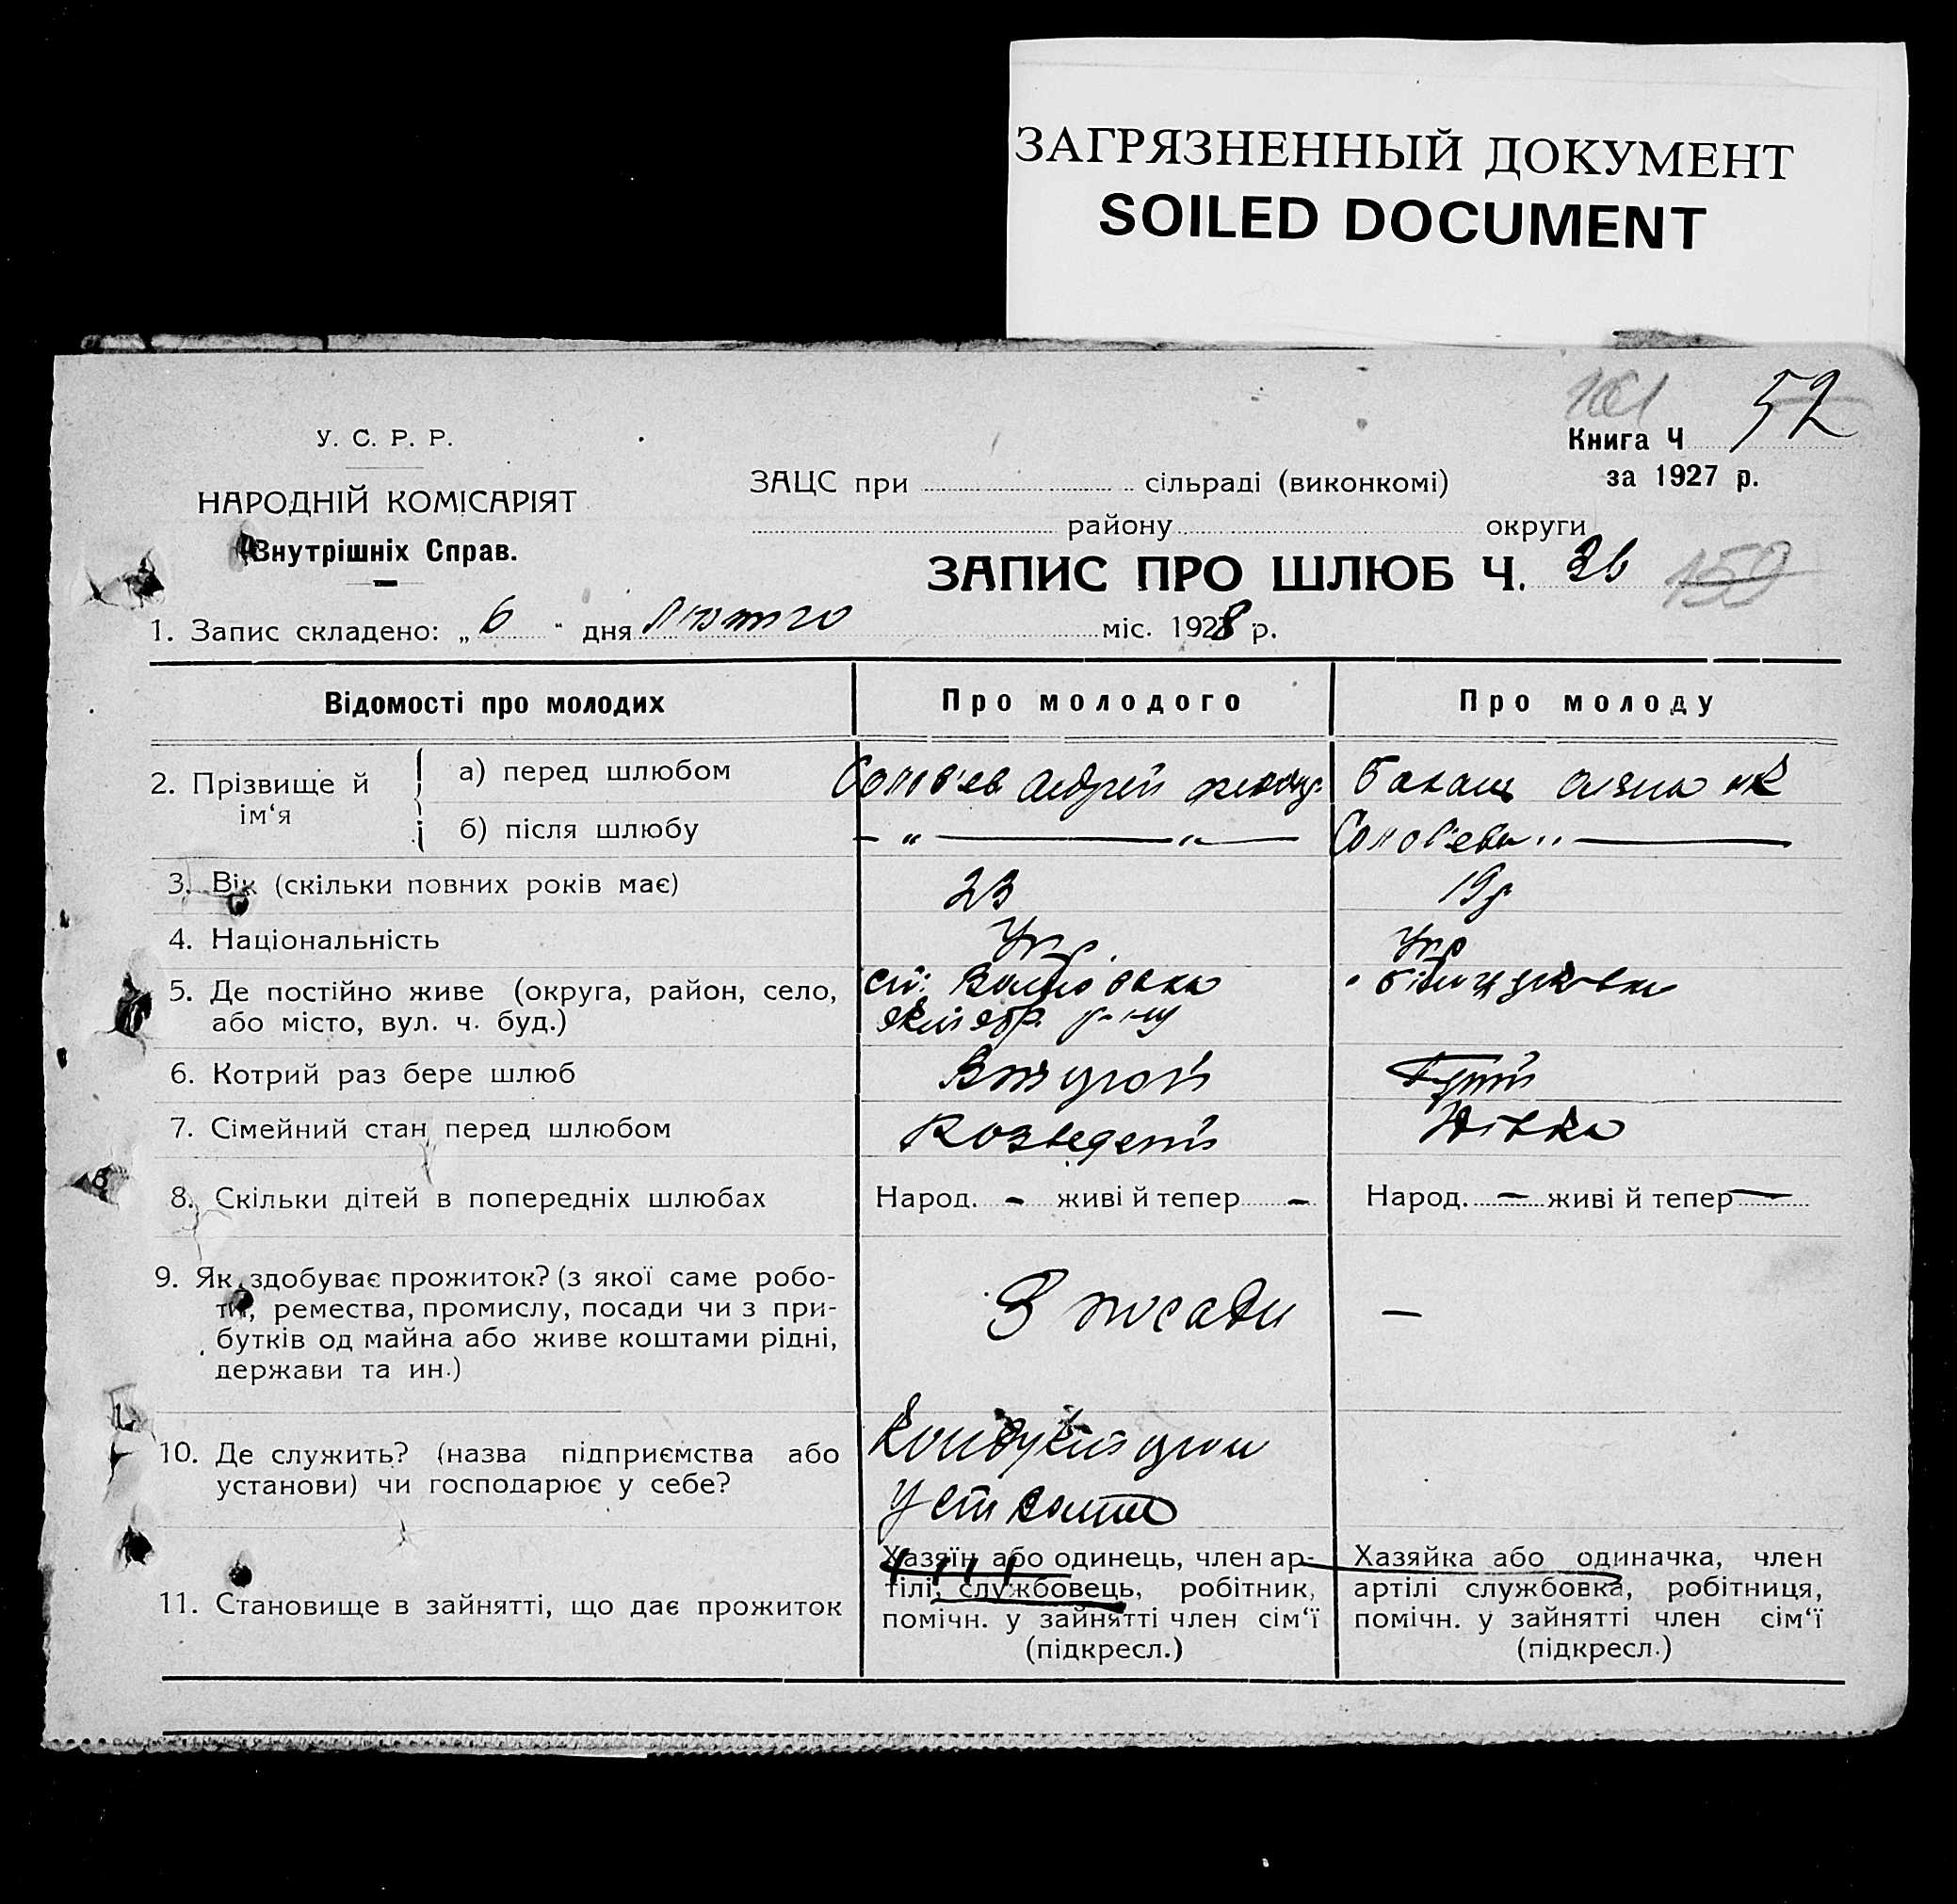 ЗАГРЯЗНЕННЫЙ ДОКУМЕНТ
SOILED DOCUMENT
У. С. Р. Р.
НАРОДНІЙ КОМІСАРІЯТ
Внутрішніх Справ.
Книга Ч 52
за 1927 р.
ЗАЦС при сільраді (виконкомі)
району округи
ЗАПИС ПРО ШЛЮБ Ч. 26
1. Запис складено: „ 6 " дня Лютого міс. 1928 р.
Відомості про молодих
Про молодого
Про молоду
2. Прізвище й ім‘я
а) перед шлюбом
Солов'ев Андрей
б) після шлюбу
— „ — „ —
Солов'ева „ —
3. Вік (скільки повних років має)
23
19 р
4. Національність
Укр.
Укр
5. Де постійно живе (округа, район, село,
або місто, вул. ч. буд.)
ст.
6. Котрий раз бере шлюб
Вторий
7. Сімейний стан перед шлюбом
Розведений
Дівка
8. Скільки дітей в попередніх шлюбах
Народ. – живі й тепер –
Народ. — живі й тепер —
9. Як здобуває прожиток? (з якої саме робо-
ти, ремества, промислу, посади чи з при-
бутків од майна або живе коштами рідні,
держави та ин.)
З посади
—
10. Де служить? (назва підприємства або
установи) чи господарює у себе?
Кондуктором
11. Становище в зайнятті, що дає прожиток
Хазяїн або одинець, член ар-
тілі, службовець, робітник,
помічн. у зайнятті член сім‘ї
(підкресл.)
Хазяйка або одиначка, член
артілі службовка, робітниця,
помічн. у зайнятті член сім‘ї
(підкресл.)